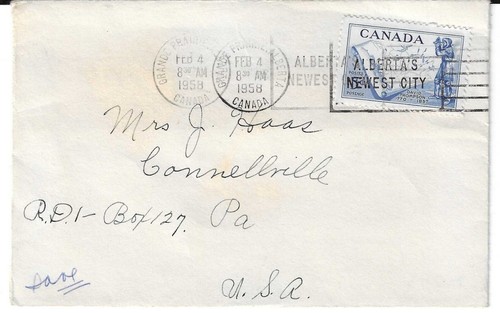 GRANDE PRAIRIE
FEB 4
8 AM
1958
CANADA
GRANDE PRAIRIE ALBERTA
FEB 4
8 AM
1958
CANADA
ALBERTA'S
NEWEST CITY
CANADA
ALBERTA'S
NEWEST CITY
5
DAVID
THOMPSON
1770-1857
Mrs J. Haas
Connellville
R.D.1- Box 127. Pa
U.S.A.
save